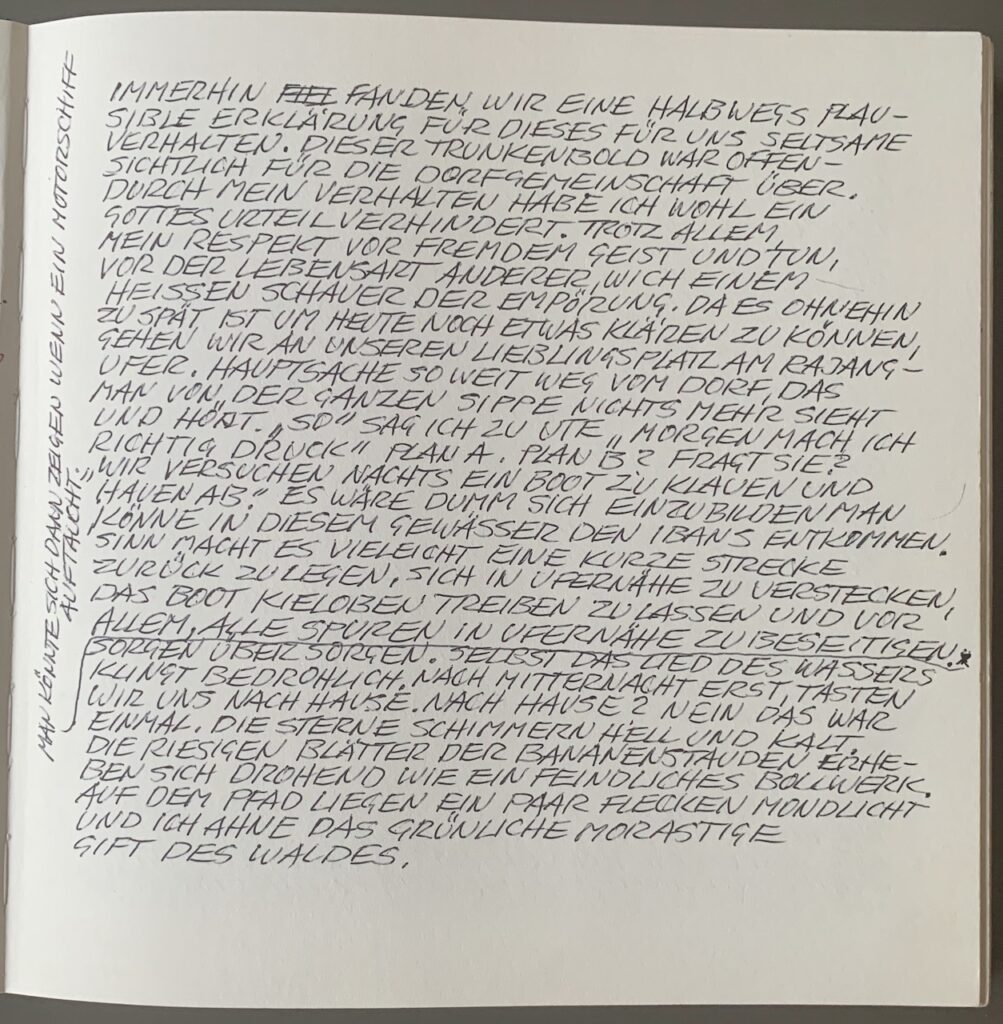 IMMERHIN FIEL FANDEN WIR EINE HALBWEGS PLAU-
SIBLE ERKLÄRUNG FÜR DIESES FÜR UNS SELTSAME
VERHALTEN. DIESER TRUNKENBOLD WAR OFFEN-
SICHTLICH FÜR DIE DORFGEMEINSCHAFT ÜBER.
DURCH MEIN VERHALTEN HABE ICH WOHL EIN
GOTTES URTEIL VERHINDERT. TROTZ ALLEM,
MEIN RESPEKT VOR FREMDEM GEIST UND TUN,
VOR DER LEBENSART ANDERER, WICH EINEM
HEISSEN SCHAUER DER EMPÖRUNG. DA ES OHNEHIN
ZU SPÄT IST UM HEUTE NOCH ETWAS KLÄREN ZU KÖNNEN,
GEHEN WIR AN UNSEREN LIEBLINGSPLATZ AM RAJANG-
UFER. HAUPTSACHE SO WEIT WEG VOM DORF, DAS
MAN VON DER GANZEN SIPPE NICHTS MEHR SIEHT
UND HÖRT. „SO" SAG ICH ZU UTE „MORGEN MACH ICH
RICHTIG DRUCK" PLAN A. PLAN B? FRAGT SIE?
„WIR VERSUCHEN NACHTS EIN BOOT ZU KLAUEN UND
HAUEN AB." ES WÄRE DUMM SICH EINZUBILDEN MAN
KÖNNE IN DIESEM GEWÄSSER DEN IBANS ENTKOMMEN.
SINN MACHT ES VIELEICHT EINE KURZE STRECKE
ZURÜCK ZU LEGEN, SICH IN UFERNÄHE ZU VERSTECKEN,
DAS BOOT KIELOBEN TREIBEN ZU LASSEN UND VOR
ALLEM, ALLE SPUREN IN UFERNÄHE ZU BESEITIGEN.*
SORGEN ÜBER SORGEN. SELBST DAS LIED DES WASSERS
KLINGT BEDROHLICH. NACH MITTERNACHT ERST, TASTEN
WIR UNS NACH HAUSE. NACH HAUSE? NEIN DAS WAR
EINMAL. DIE STERNE SCHIMMERN HELL UND KALT.
DIE RIESIGEN BLÄTTER DER BANANENSTAUDEN ERHE-
BEN SICH DROHEND WIE EIN FEINDLICHES BOLLWERK.
AUF DEM PFAD LIEGEN EIN PAAR FLECKEN MONDLICHT
UND ICH AHNE DAS GRÜNLICHE MORASTIGE
GIFT DES WALDES.
MAN KÖNNTE SICH DANN ZEIGEN WENN EIN MOTORSCHIFF
AUFTAUCHT.